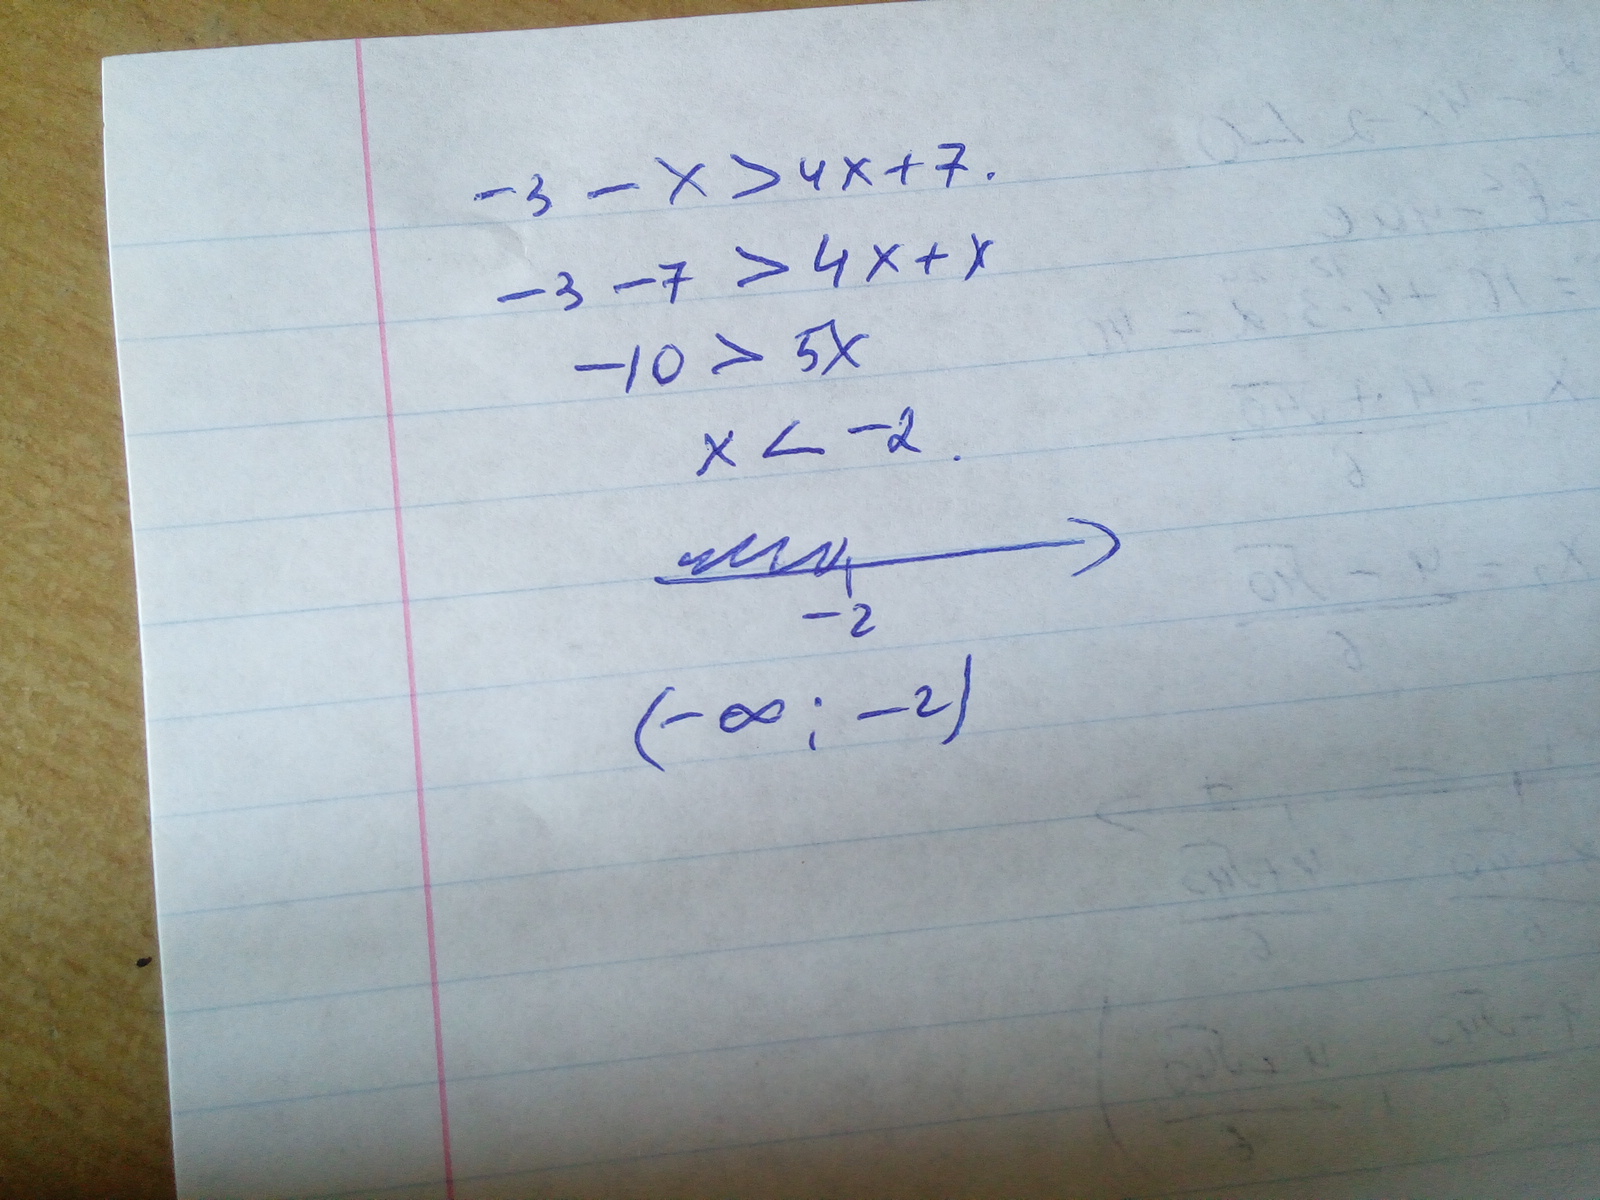 -3 - x > 4x + 7.
-3 - 7 > 4x + x
-10 > 5x
x < -2.
-2
(-∞; -2)